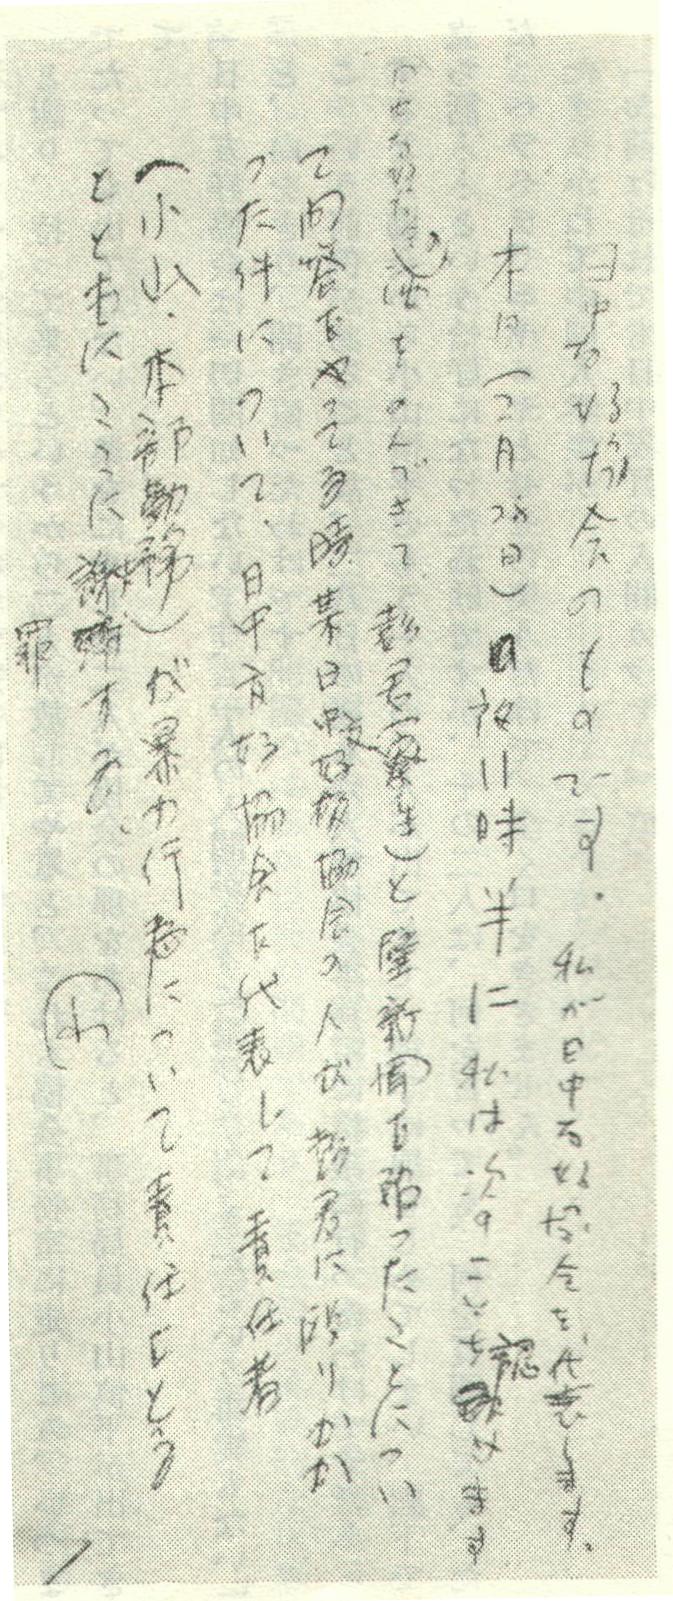 日中友好協会のものです。私が日中友好協会を代表します。
本日(二月28日)夜11時半に私は次のことを認めます
をのんできて、彭君(寮生)と壁新聞を貼ったことについ
て問答をやってる時某日中友好協会の人が彭君に殴りかか
った件について、日中友好協会を代表して責任者
(小山・本部勤務)が暴力行為について責任をとる
とともにここに謝罪する。
小